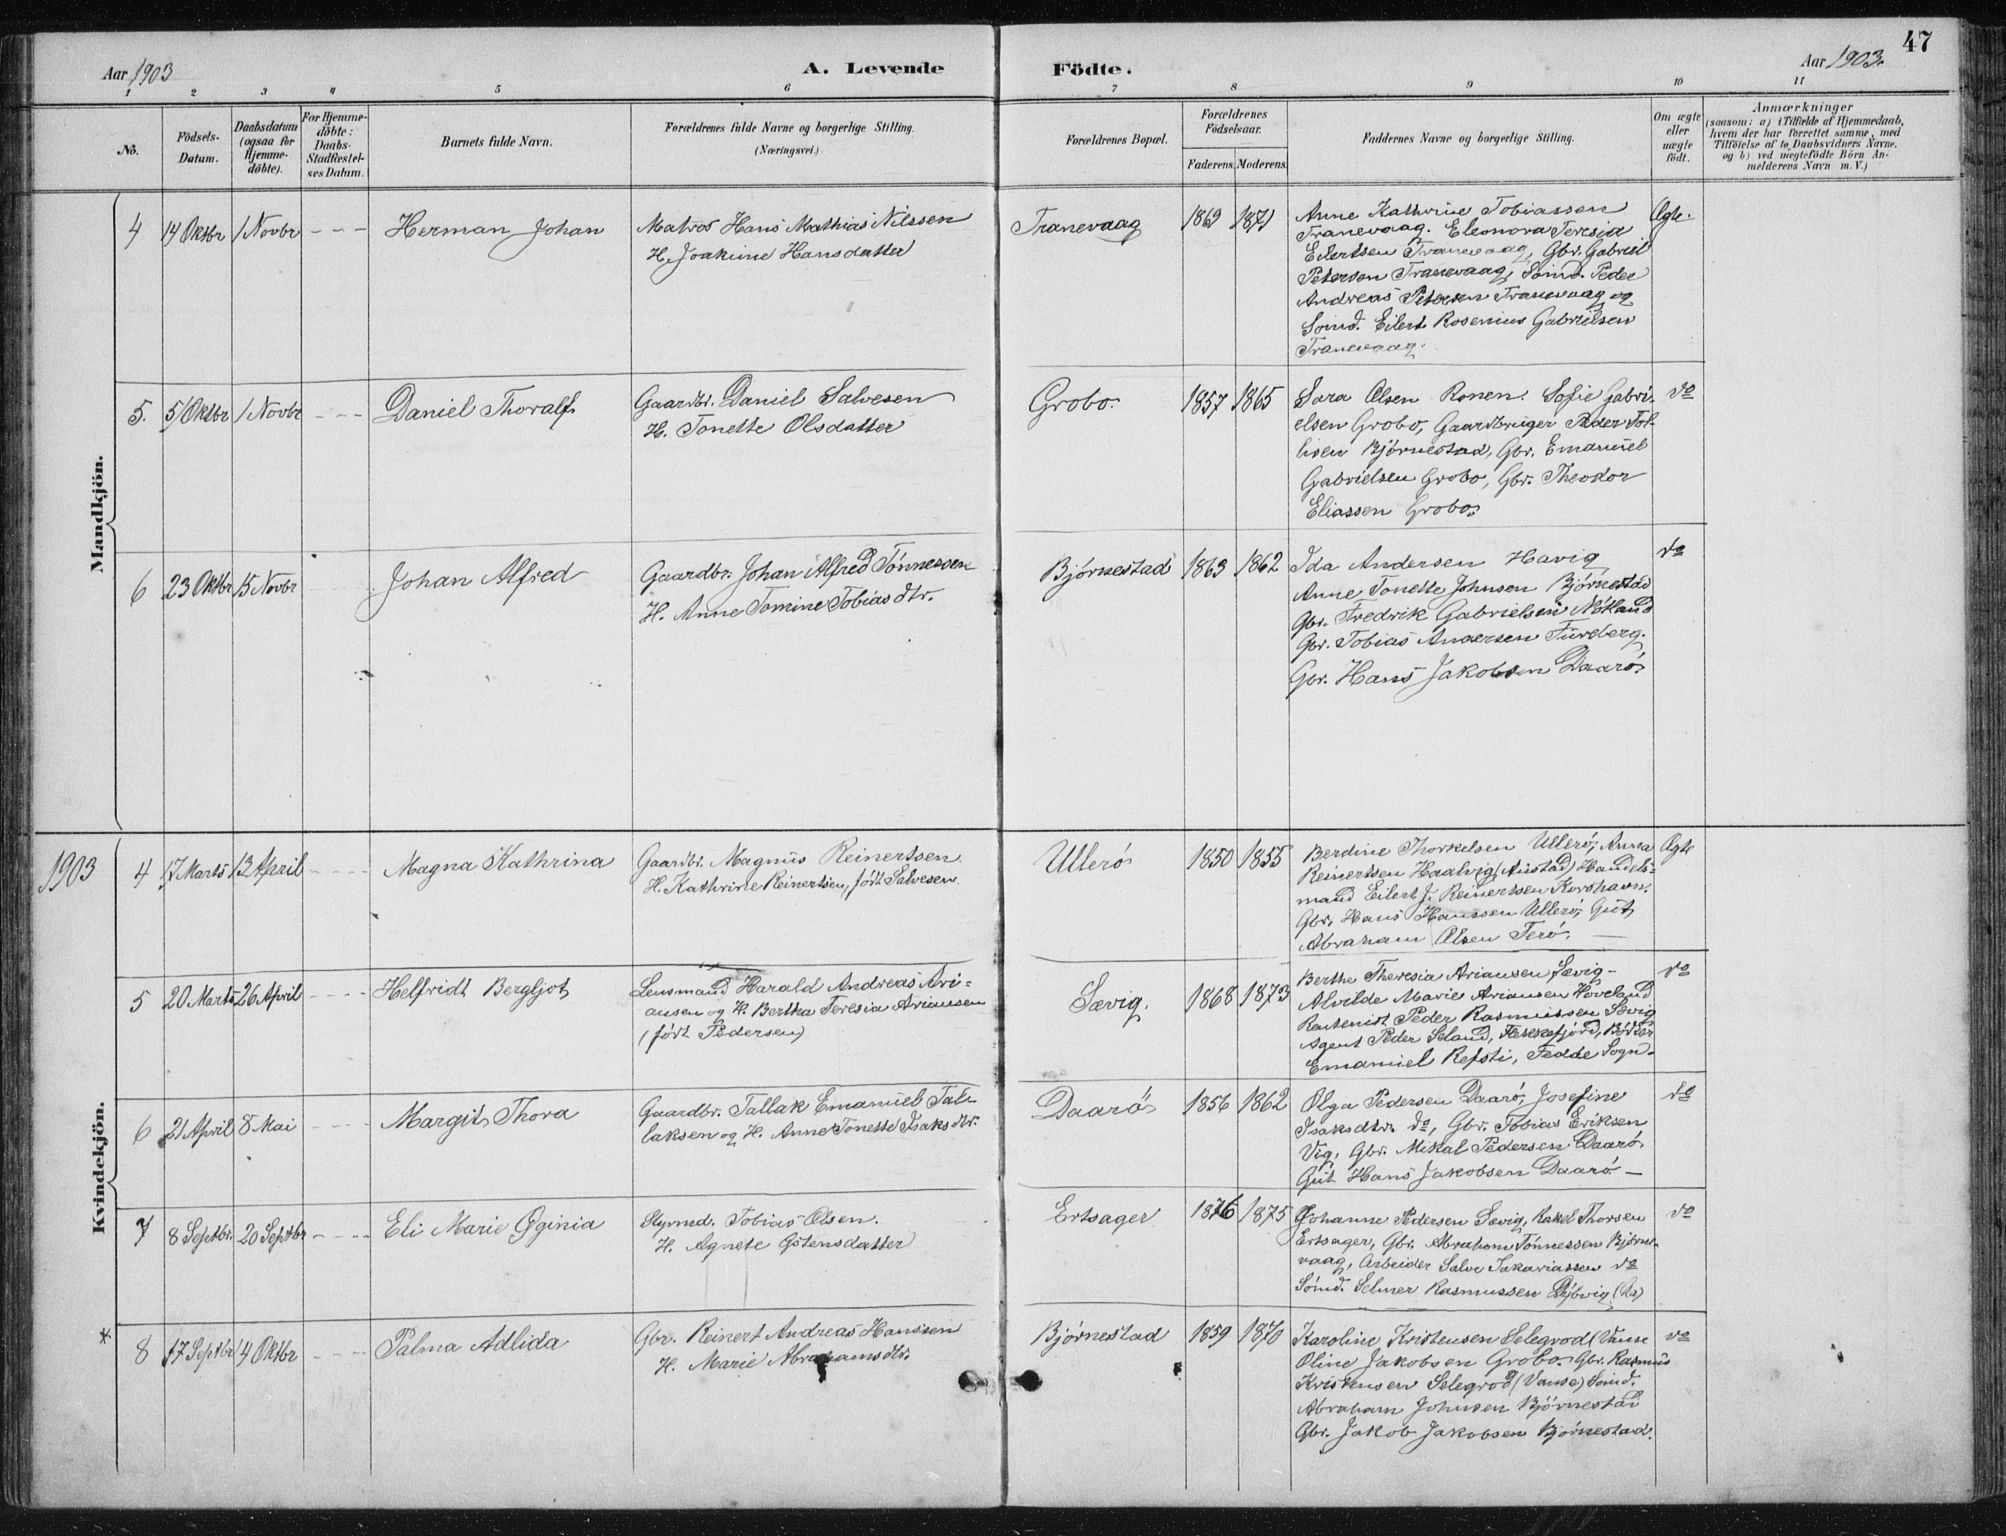 47
Aar 1903
A. Levende Födte.
Aar 1903.
1 2 3 4 5 6 7 8 9 10 11
No.
Födsels-
Datum.
Daabsdatum
(ogsaa for
Hjemme-
döbte).
For Hjemme-
döbte:
Daabs-
Stadfæstel-
ses Datum.
Barnets fulde Navn.
Forældrenes fulde Navne og borgerlige Stilling.
(Næringsvei.)
Forældrenes Bopæl.
Forældrenes
Födselsaar.
Faderens. Moderens.
Faddernes Navne og borgerlige Stilling.
Om ægte
eller
uægte
födt.
Anmærkninger
(saasom: a) i Tilfælde af Hjemmedaab,
hvem der har forrettet samme, med
Tilföielse af to Daabsvidners Navne,
og b) ved uægtefödte Börn An-
melderens Navn m. V.)
Mandkjön.
4 14 Oktbr 1 Novbr - - - Herman Johan
Matros Hans Mathias Nilssen
H. Joakime Hansdatter
Tranevaag 1869 1871
Anne Kathrine Tobiassen
Tranevaag. Eleonora Teresia
Eilertsen Tranevaag, Gbr. Gabriel
Petersen Tranevaag, Sömd. Peder
Andreas Petersen Tranevaag og
Sömd. Eilert Rosenius Gabrielsen
Tranevaag.
Ægte.
5. 5 Oktbr 1 Novbr - - - Daniel Thoralf
Gaardbr. Daniel Salvesen
H. Tonette Olsdatter
Grobo. 1857 1865
Sara Olsen Ronen. Sofie Gabri-
elsen Grobo, Gaardbruger Peder Tol-
lisen Bjørnestad, Gbr. Emanuel
Gabrielsen Grobo, Gbr. Theodor
Eliassen Grobo.
do
6 23 Oktbr 15 Novbr Johan Alfred
Gaardbr. Johan Alfred Tønnessen
H. Anne Tomine Tobiasdtr.
Bjørnestad 1863 1862
Ida Andersen Havig
Anne Tonette Johnsen Bjørnestad
Gbr. Fredrik Gabrielsen Nötland
Gbr. Tobias Andersen Fureberg.
Gbr. Hans Jakobsen Daarö.
do
1903
Kvindekjön.
4 17 Marts 13 April - - - - Magna Kathrina
Gaardbr. Magnus Reinertsen
H. Kathrine Reinertsen, født Salvesen
Ullerö 1850 1855
Berdine Thorkelsen Ullerö, Anna
Reinertsen Haalvig (Austad) Handels-
mand Eilert J. Reinertsen Korshavn.
Gbr. Hans Hanssen Ullerö, Gut
Abraham Olsen Terö.
Ægte
5 20 Marts 26 April - - - - Helfridt Bergljot
Lensmand Harald Andreas Ari-
ansen og H. Bertha Teresia Ariansen
(født Pedersen)
Sævig. 1868 1873
Berthe Theresia Ariansen Sævig -
Alvilde Marie Ariansen Hoveland
Rentenist Peder Rasmussen Sævig
Agent Peder Seland, Flekkefjord, Bödker
Emanuel Refsti, Fedde Sogn -
do
6 21 April 8 Mai - - - - Margit Thora
Gaardbr. Tallak Emanuel Tal-
laksen og H. Anne Tonette Isaksdtr.
Daarö 1856 1862
Olga Pedersen Daarö, Josefine
Isaksdtr. do, Gbr. Tobias Eriksen
Vig, Gbr. Mikal Pedersen Daarö
Gut Hans Jakobsen Daarö -
do
7 8 Septbr. 20 Septbr - - - - Eli Marie Øginia
Styrmd. Tobias Olsen.
H. Agnete Østensdatter
Ertsager 1876 1875
Johanne Pedersen Sævig, Rakel Thorsen
Ertsager, Gbr. Abraham Tönnessen Bjørne-
vaag, Arbeider Salve Sakariassen do
Sömd. Selmer Rasmussen Dybvig (Aa)
do
*
8 17 Septbr 4 Oktbr - - - - Palma Adlida
Gbr. Reinert Andreas Hanssen
H. Marie Abrahamsdtr.
Bjørnestad 1859 1870
Karoline Kristensen Selegrod (Vanse
Oline Jakobsen Grobo. Gbr. Rasmus
Kristensen Selegrod (Vanse) Sömd.
Abraham Johnsen Bjørnestad
Gbr. Jakob Jakobsen Bjørnestad.
do